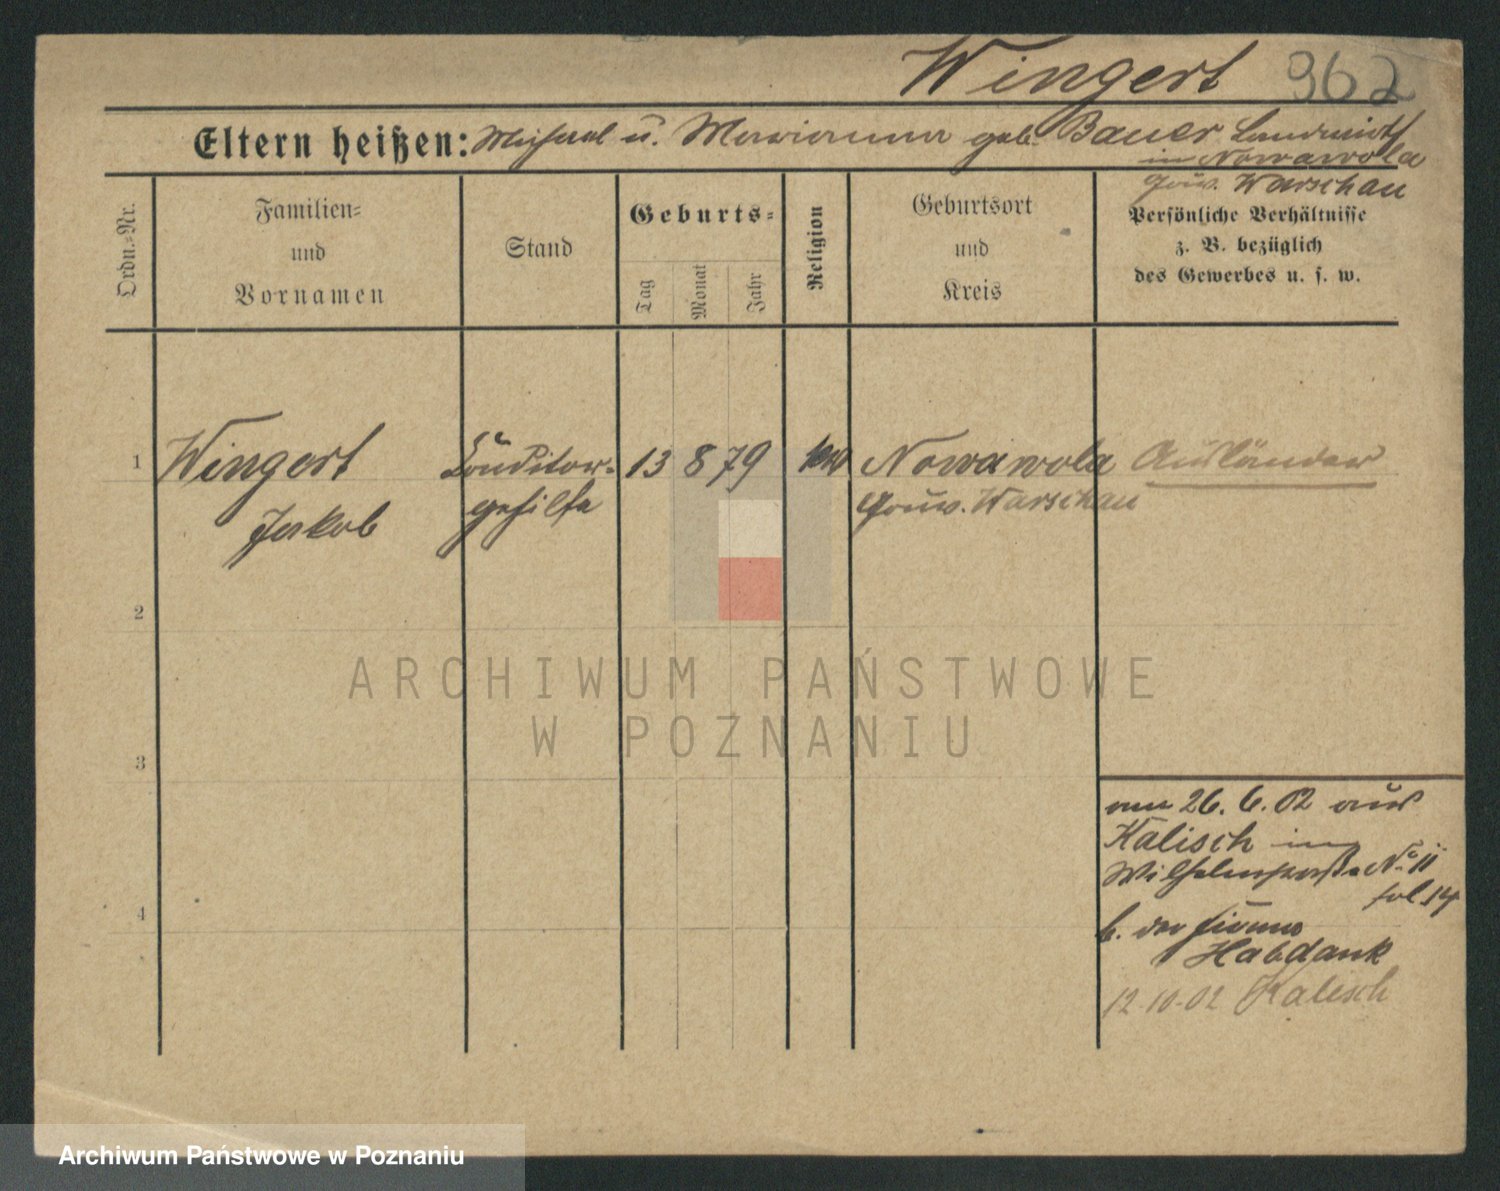 Wingert 962
Eltern heißen: Michael u. Marianna geb. Bauer Landwirth
in Nowawola
Gouv. Warschau
Ordn.=Nr.
Familien=
und
Vornamen
Stand
Geburts=
Tag
Monat
Jahr
Religion
Geburtsort
und
Kreis
Persönliche Verhältnisse
z. B. bezüglich
des Gewerbes u. s. w.
1 Wingert Conditor- 13 8 79 Nowawola Ausländer
Jakob gehilfe Gouv. Warschau
2
3
4
am 26. 6. 02 aus
Kalisch in
Wilhelmstraße No 11
fol. 14
b. der Firma
Habdank
12.10.02 Kalisch
ARCHIWUM PAŃSTWOWE
W POZNANIU
Archiwum Państwowe w Poznaniu